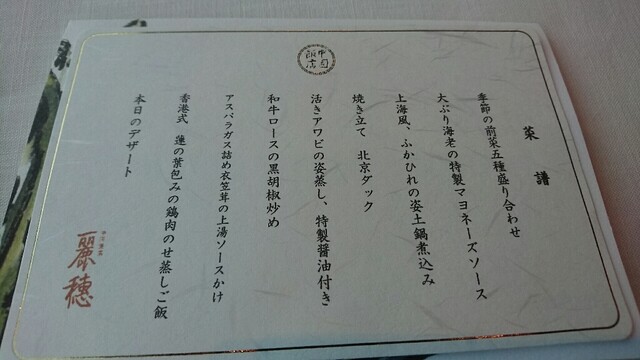 中国飯店
菜譜
季節の前菜五種盛り合わせ
大ぶり海老の特製マヨネーズソース
上海風、ふかひれの姿土鍋煮込み
焼き立て 北京ダック
活きアワビの姿蒸し、特製醤油付き
和牛ロースの黒胡椒炒め
アスパラガス詰め衣笠茸の上湯ソースかけ
香港式 蓮の葉包みの鶏肉のせ蒸しご飯
本日のデザート
麗穂